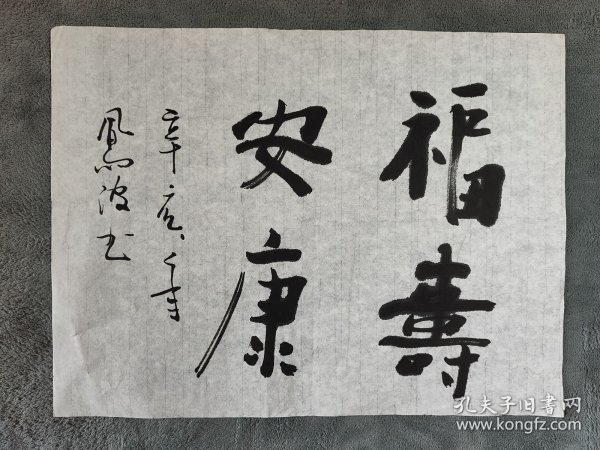 福壽
安康
辛亥年
鳳波书
孔夫子旧書网
www.kongfz.com